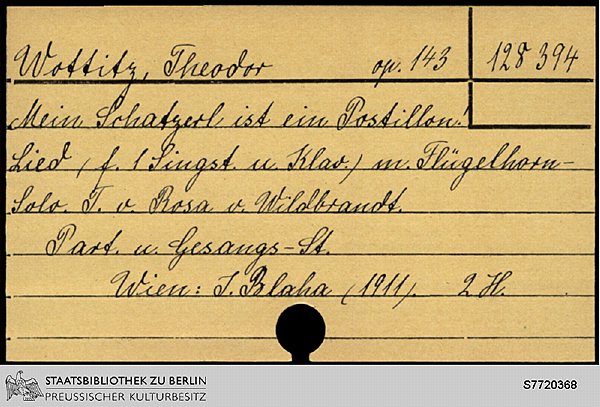 Wottitz, Theodor op. 143 128 394
Mein Schatzerl ist ein Postillon!
Lied (f. 1 Singst. u. Klav.) m. Flügelhorn-
Solo. T. v. Rosa v. Wildbrandt.
Part. u. Gesangs-St.
Wien: J. Blaha (1911). 2 H.
STAATSBIBLIOTHEK ZU BERLIN
PREUSSISCHER KULTURBESITZ
S7720368